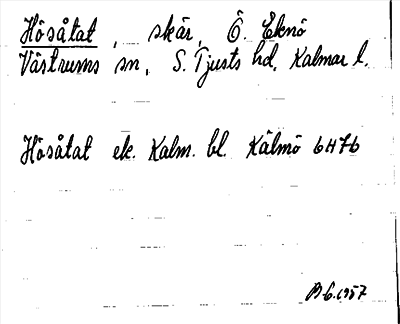 Hösåtat, skär, Ö. Eknö
Västrums sn, S. Tjusts hd, Kalmar l.
Hösåtat ek. Kalm. bl. Kälmö 6H7b
1957